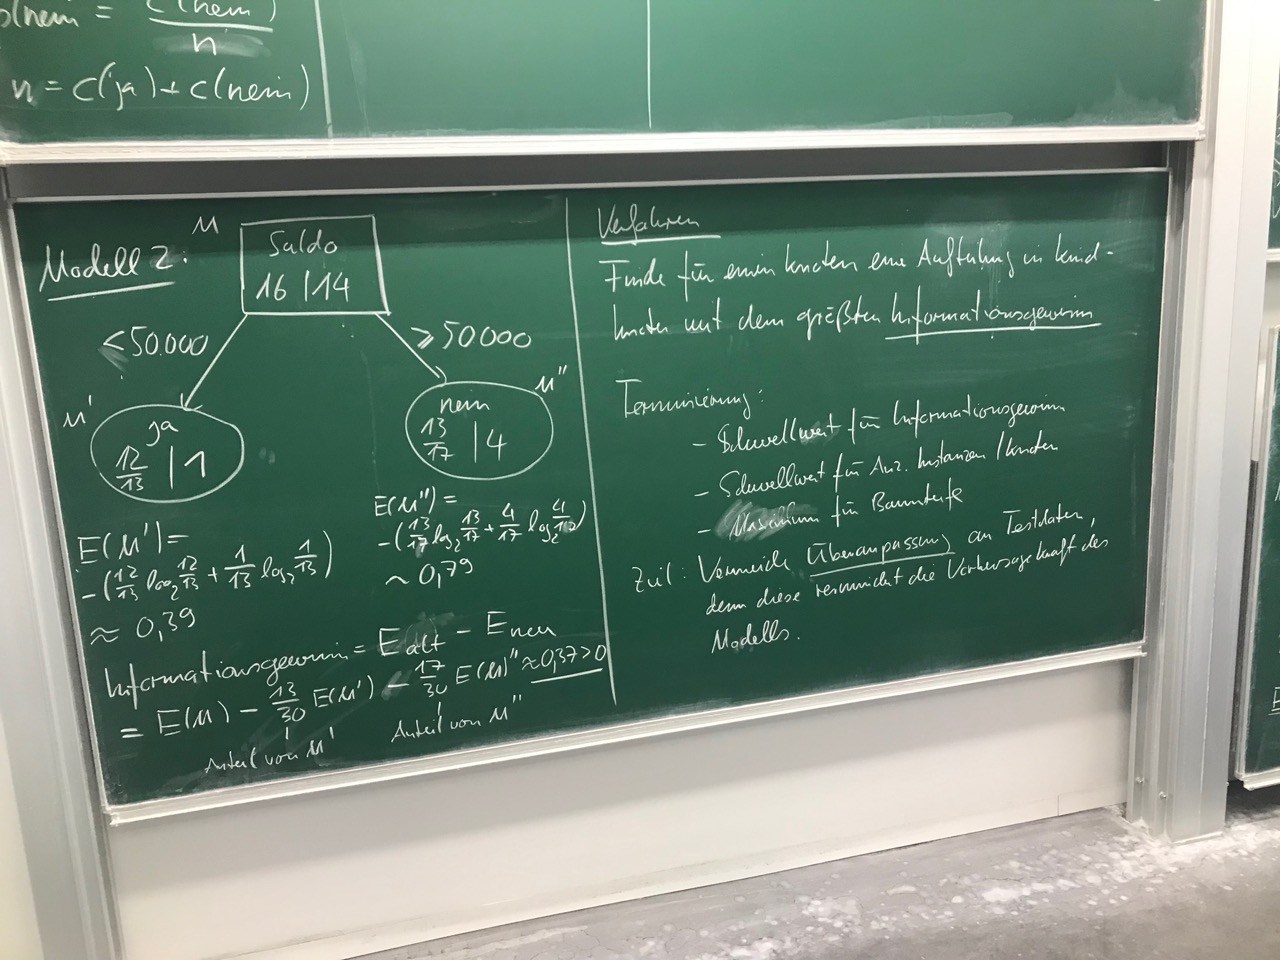 p(nein) = c(nein)
n
n = c(ja) + c(nein)
Modell 2:
M
Saldo
16 | 14
< 50.000
≥ 50000
M'
ja
12/13 | 1
M''
nein
13/17 | 4
E(M') =
-(12/13 log₂ 12/13 + 1/13 log₂ 1/13)
≈ 0,39
E(M'') =
-(13/17 log₂ 13/17 + 4/17 log₂ 4/17)
~ 0,79
Informationsgewinn = E alt - E neu
= E(M) - 13/30 E(M') - 17/30 E(M)'' ≈ 0,37 > 0
Anteil von M'
Anteil von M''
Verfahren
Finde für einen Knoten eine Aufteilung in Kind-
knoten mit dem größten Informationsgewinn
Terminierung:
- Schwellwert für Informationsgewinn
- Schwellwert für Anz. Instanzen / Knoten
- Maximum für Baumtiefe
Ziel: Vermeide Überanpassung an Testdaten,
denn diese vermindert die Vorhersagekraft des
Modells.